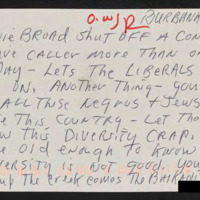 O.W.J R BURBANK
IE BROAD SHUT OFF A CON
VE CALLER MORE THAN ON
DAY - LETS THE LIBERALS
ON. ANOTHER THING - YOU
ALL THOSE NEGROS + JEWS
E THIS COUNTRY - LET THO
W THIS DIVERSITY CRAP.
E OLD ENOUGH TO KNOW
VERSITY IS NOT GOOD. YOU
UP THE CREEK COMES THE